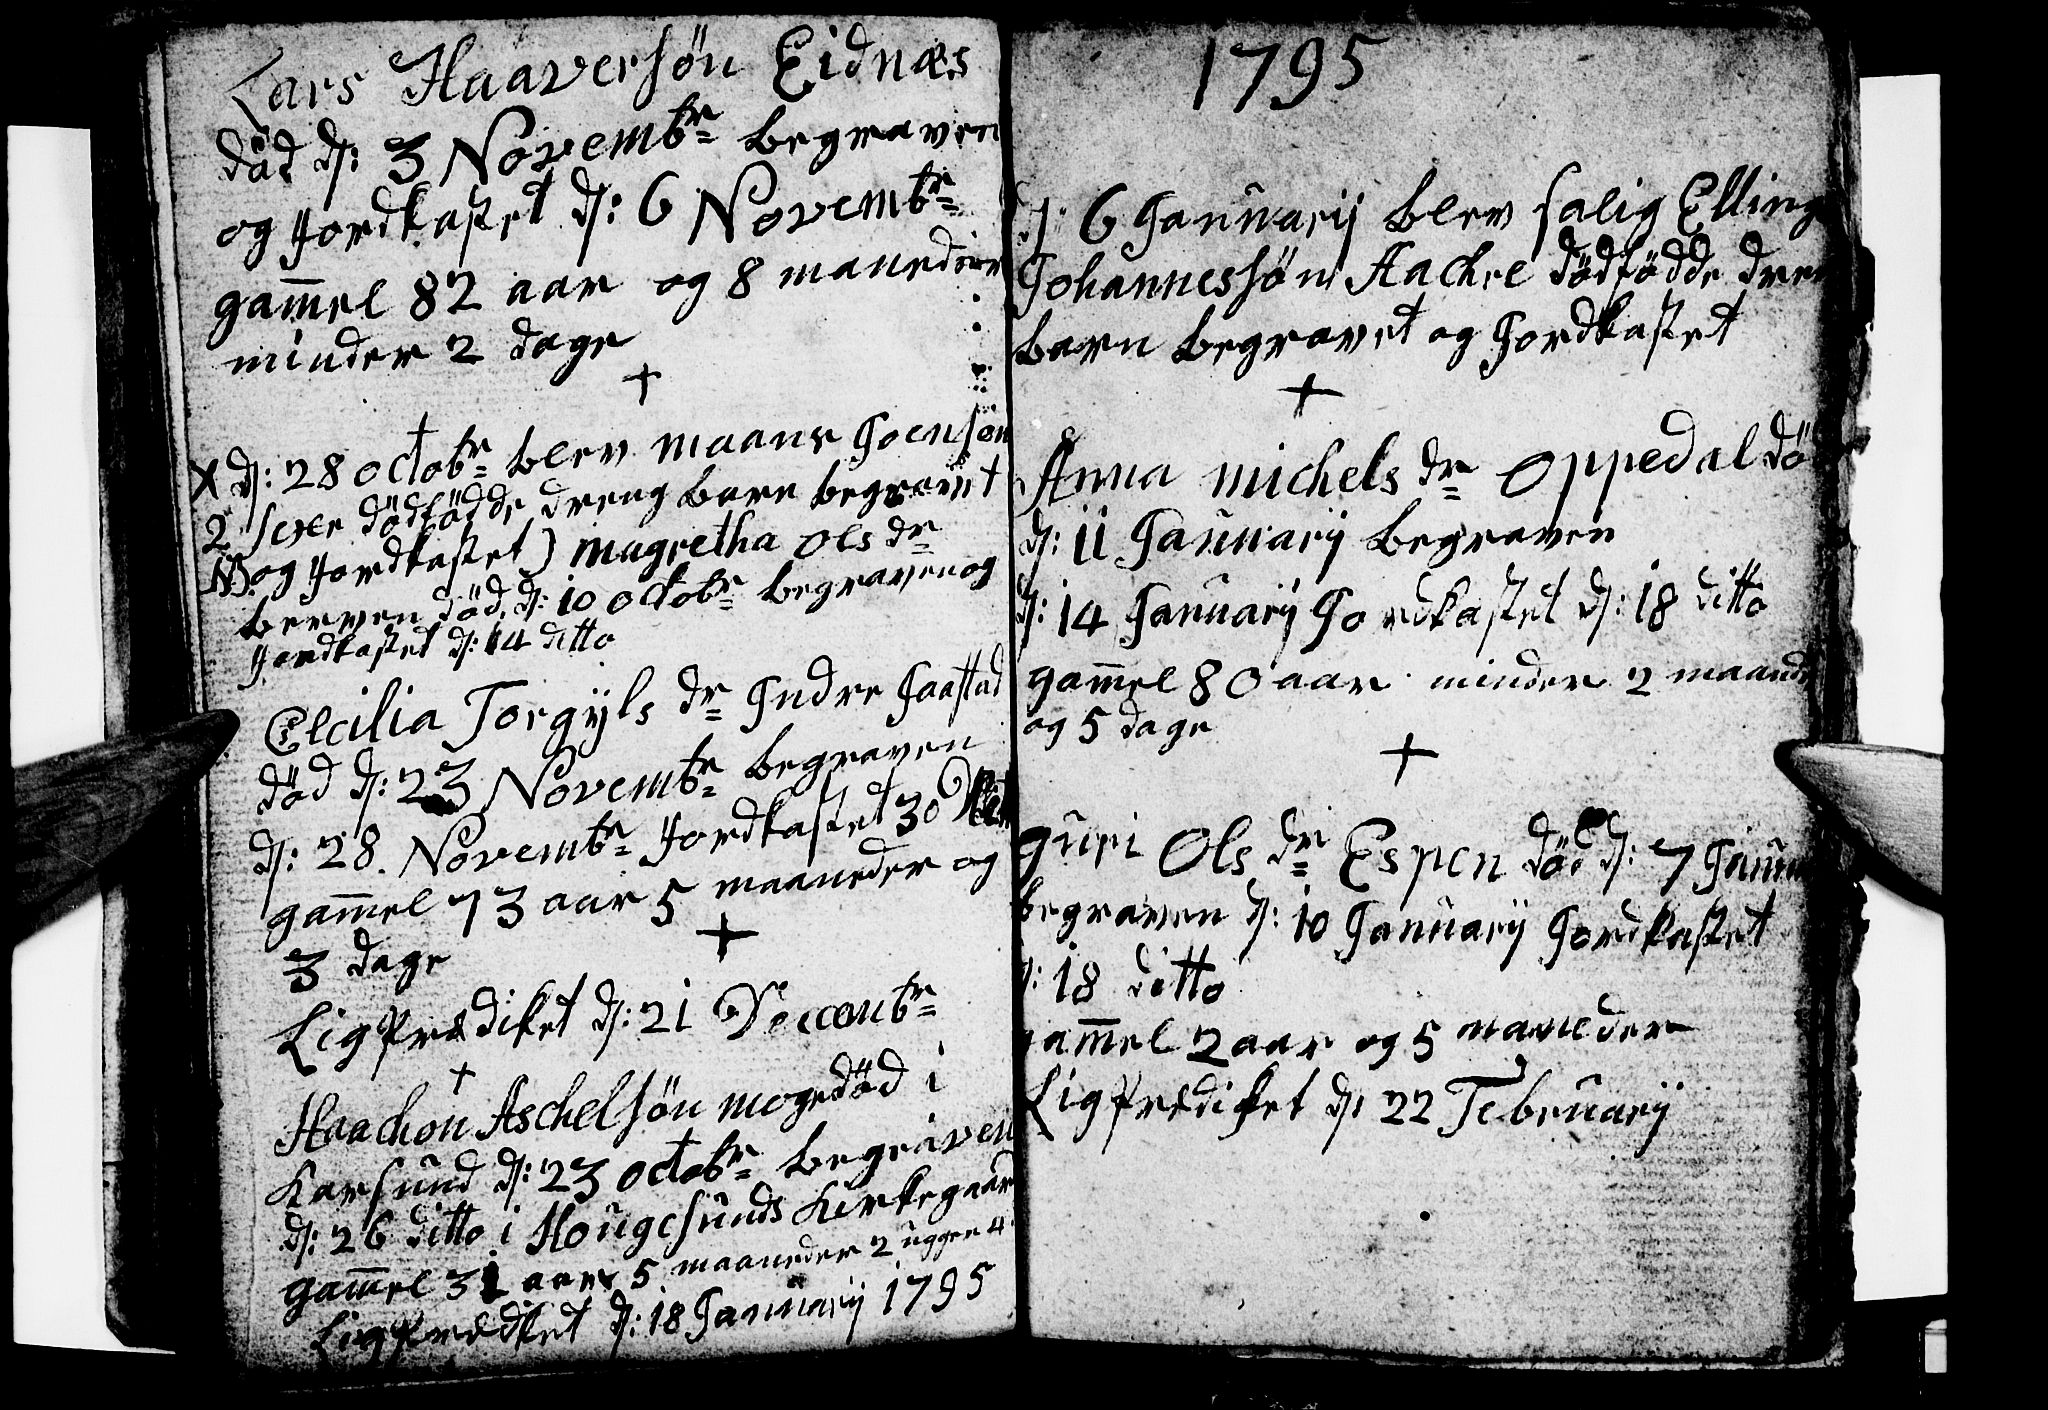 Lars Haaversøn Eidnæs
död ds: 3 Novembr begraven
og Jordkastet ds: 6 Novembr
gam̄el 82 aar og 8 maneder
minder 2 dage
+
+
X ds: 28 octobr blev maans Joensøn
2 Sexe dödfödde dreng barn begravet
NB og Jordkastet) magretha Ols dr
berven död ds: 10 octobr begraven og
Jordkastet ds: 14 ditto
Cecilia Torgÿls dr Indre Jaastad
död ds: 23 Novembr begraven
ds: 28. Novembr Jordkastet 30
gam̄el 73 aar 5 maaneder og
3 dage
+
Ligprædiket ds: 21 Decembr
+
Haachon Aschelsøn moge död i
Karsund ds: 23 octobr begraven
ds: 26 ditto i Hougesunds Kirkegaar
gam̄el 31 aar 5 maaneder 2 ugger 4
Ligprædiket ds: 18 Januarij 1795
1795
ds: 6 Januarij blev salig Elling
Johannessøn Aachre dödfödde dren
barn begravet og Jordkastet
+
Anna michels dr Oppedal dö
ds: 11 Januarij begraven
ds: 14 Januarij Jordkastet ds: 18 ditto
gam̄el 80 aar minder 2 maande
og 5 dage
+
guri Ols dr Espen död ds: 7 Januar
begraven ds: 10 Januarij Jordkastet
ds: 18 ditto
gam̄el 2 aar og 5 maneder
Ligprædiket ds 22 Februarij